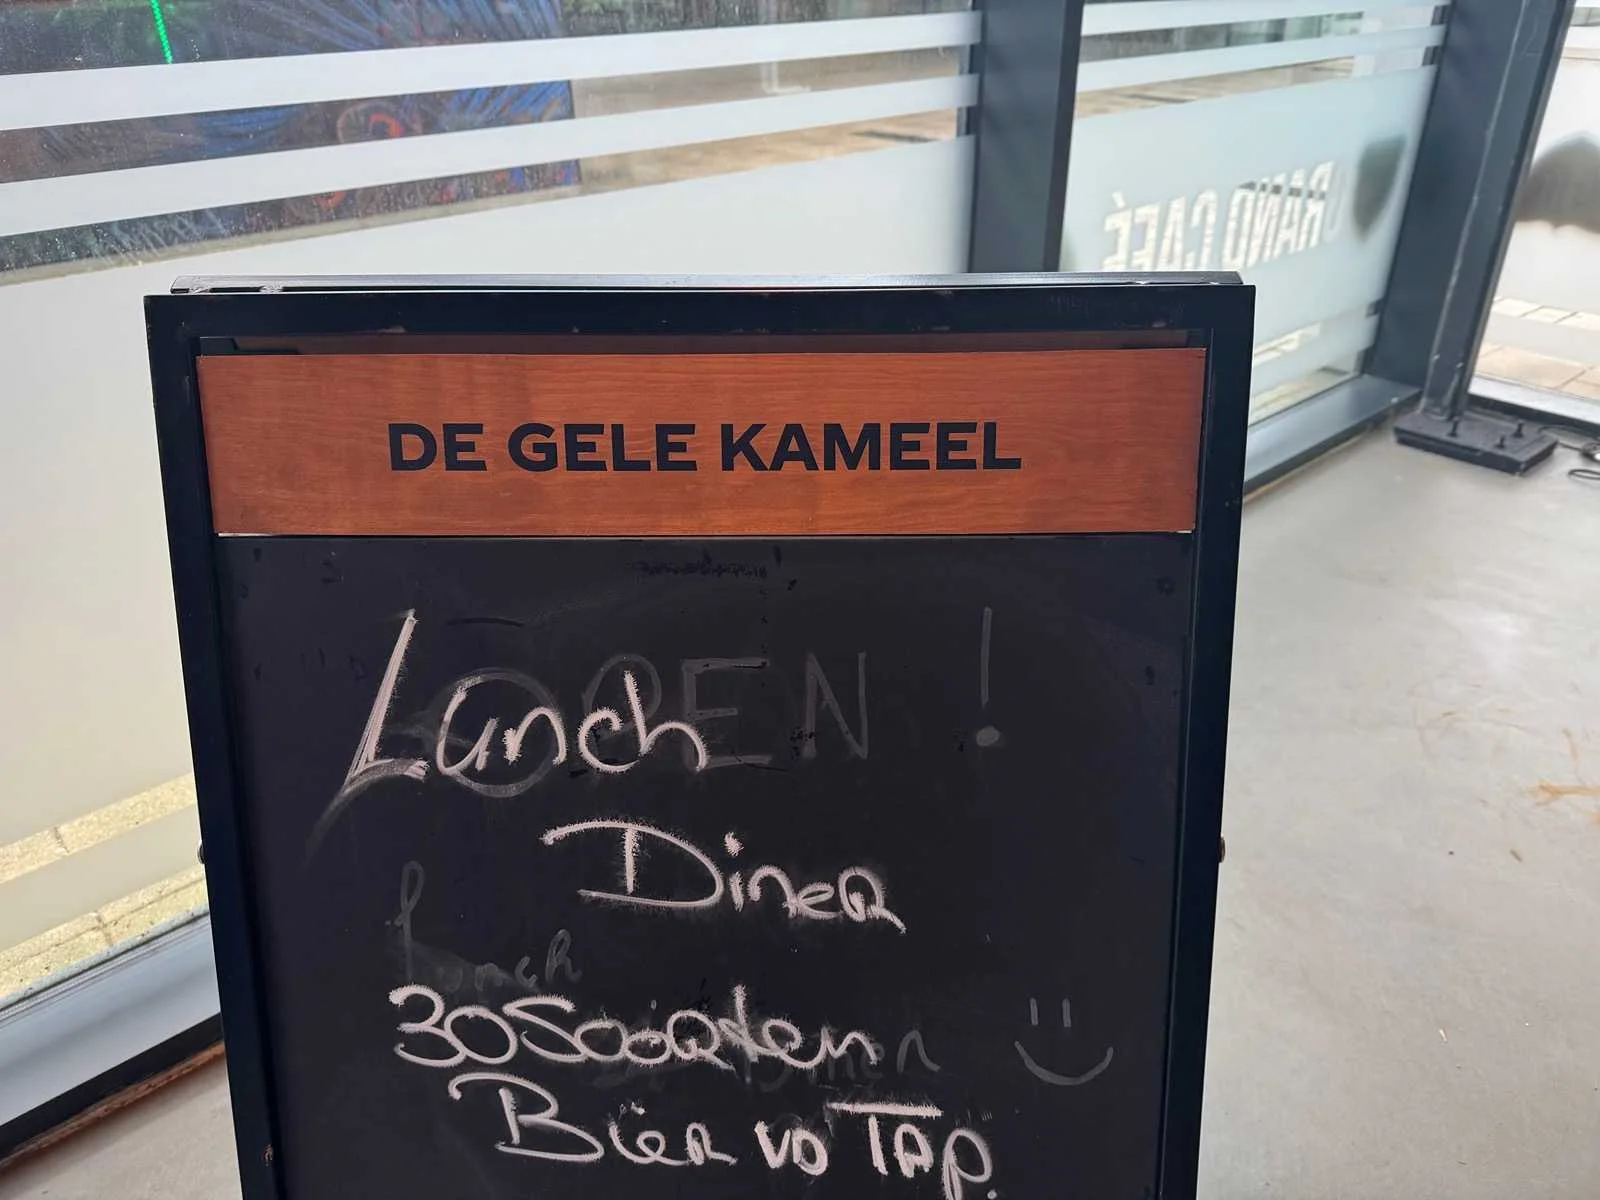 GRAND CAFÉ
DE GELE KAMEEL
Lunch
OPEN !
Diner
Lunch
30 Soorten
Bier vd TAP.